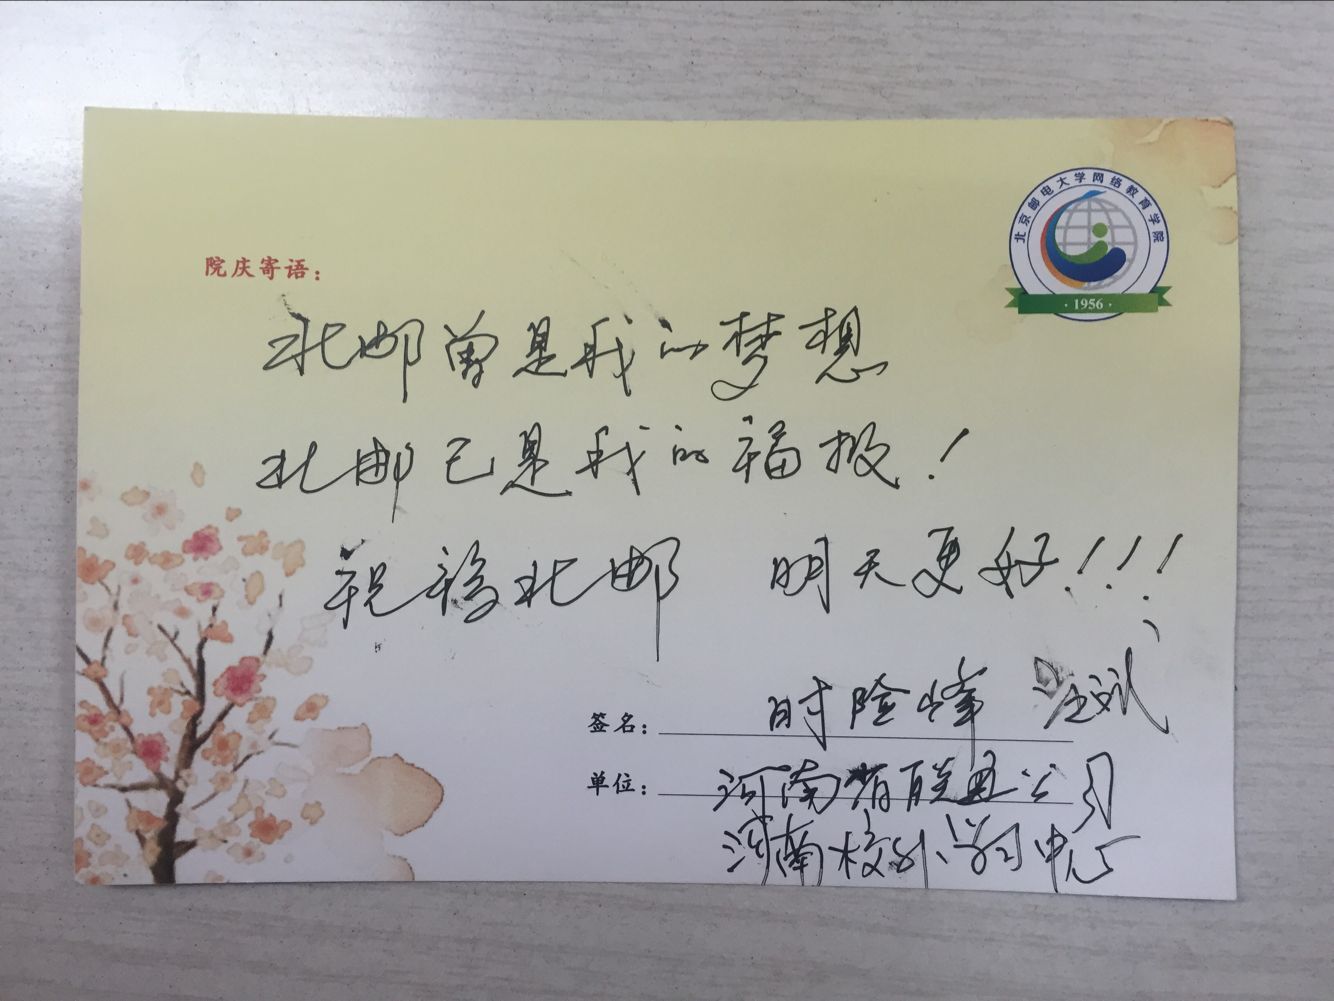 北京邮电大学网络教育学院
·1956·
院庆寄语：
北邮曾是我的梦想
北邮已是我的福报！
祝福北邮 明天更好！！！
签名： 时险峰 汪斌
单位： 河南省联通公司
河南校外学习中心